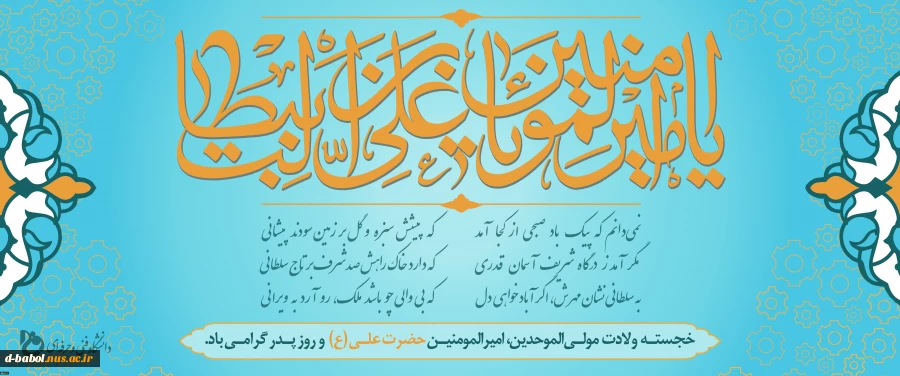 یا امیرالمومنین یا علی بن ابیطالب
نمی‌دانم که پیک باد صبحی از کجا آمد که پیشش سبزه و گل بر زمین سودند پیشانی
مگر آمد ز درگاه شریف آسمان قدری که دارد خاک راهش صد شرف بر تاج سلطانی
به سلطانی نشان مهرش، اگر آباد خواهی دل که بی والی چو باشد ملک، رو آرد به ویرانی
خجسته ولادت مولی‌الموحدین، امیرالمومنین حضرت علی (ع) و روز پدر گرامی باد.
دانشگاه فنی و حرفه‌ای
d-babol.nus.ac.ir